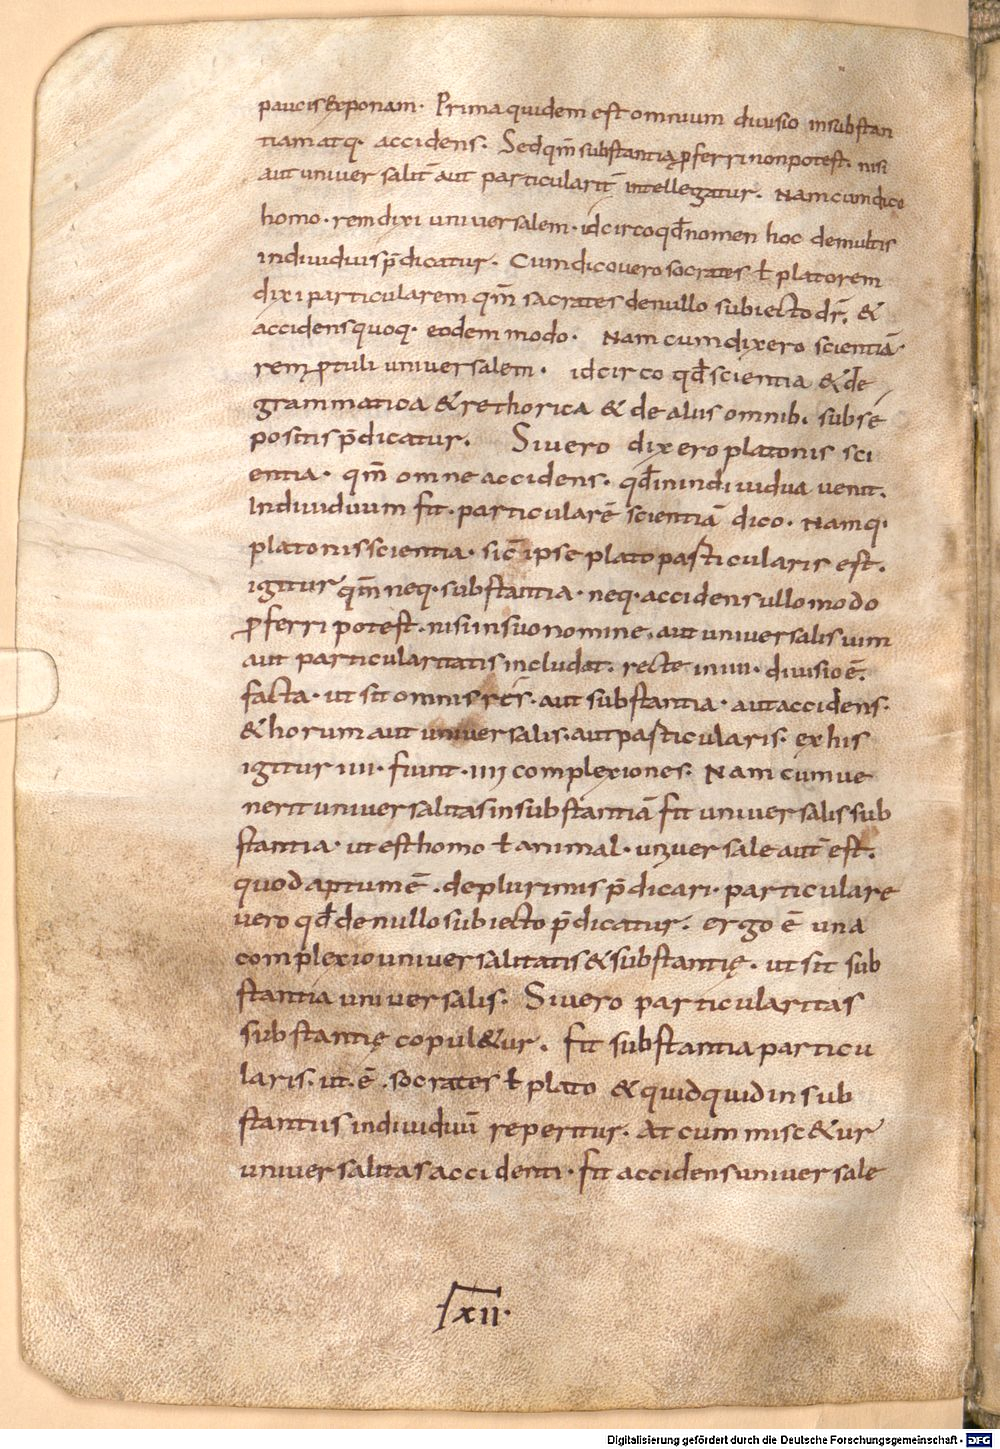 paucis exponam. Prima quidem est omnium diuisio insubstan
tiam atq; accidens. Sed qm̅ substantia p̲ferri non potest. nisi
aut uniuersalit̅ aut particularit̅ intellegatur. Nam cum dico
homo. rem dixi uniuersalem. idcirco qd̅ nomen hoc demultis
indiuiduis p̅dicatur. Cum dico uero socrates ƚ platorem
dixi particularem qm̅ sacrates de nullo subiecto dr̅. &
accidens quoq; eodem modo. Nam cum dixero scientiā.
rem p̲tuli uniuersalem. idcirco qd̅ scientia & de
grammatica & rethorica & de aliis omnib; subse
positis p̅dicatur. Si uero dixero platonis sci
entia. qm̅ omne accidens. qd̅ in indiuidua uenit.
Indiuiduum fit. particularē scientiā dico. Namq;
platonis scientia. sic̅ ipse plato particularis est.
igitur qm̅ neq; substantia. neq; accidens ullo modo
p̲ferri potest. nisi in suo nomine. aut uniuersalis uim
aut particularitatis includat. recte in iiii. diuisio ē.
facta. ut sit omnis res. aut substantia. aut accidens.
& horum aut uniuersalis. aut particularis. ex his
igitur iiii. fiunt. iiij complexiones. Nam cum ue
nerit uniuersalitas in substantiā fit uniuersalis sub
stantia. ut est homo ƚ animal. uniuersale aut̅ est.
quod aptum ē. de plurimis p̅dicari. particulare
uero qd̅ de nullo subiecto p̅dicatur. ergo ē una
complexio uniuersalitatis & substantię. ut sit sub
stantia uniuersalis. Si uero particularitas
substantię copul&ur. fit substantia particu
laris. ut. ē. socrates ƚ plato & quidquid in sub
stantiis indiuiduū reperitur. At cum misc&ur
uniuersalitas accidenti. fit accidens uniuersale
xii.
Digitalisierung gefördert durch die Deutsche Forschungsgemeinschaft - DFG